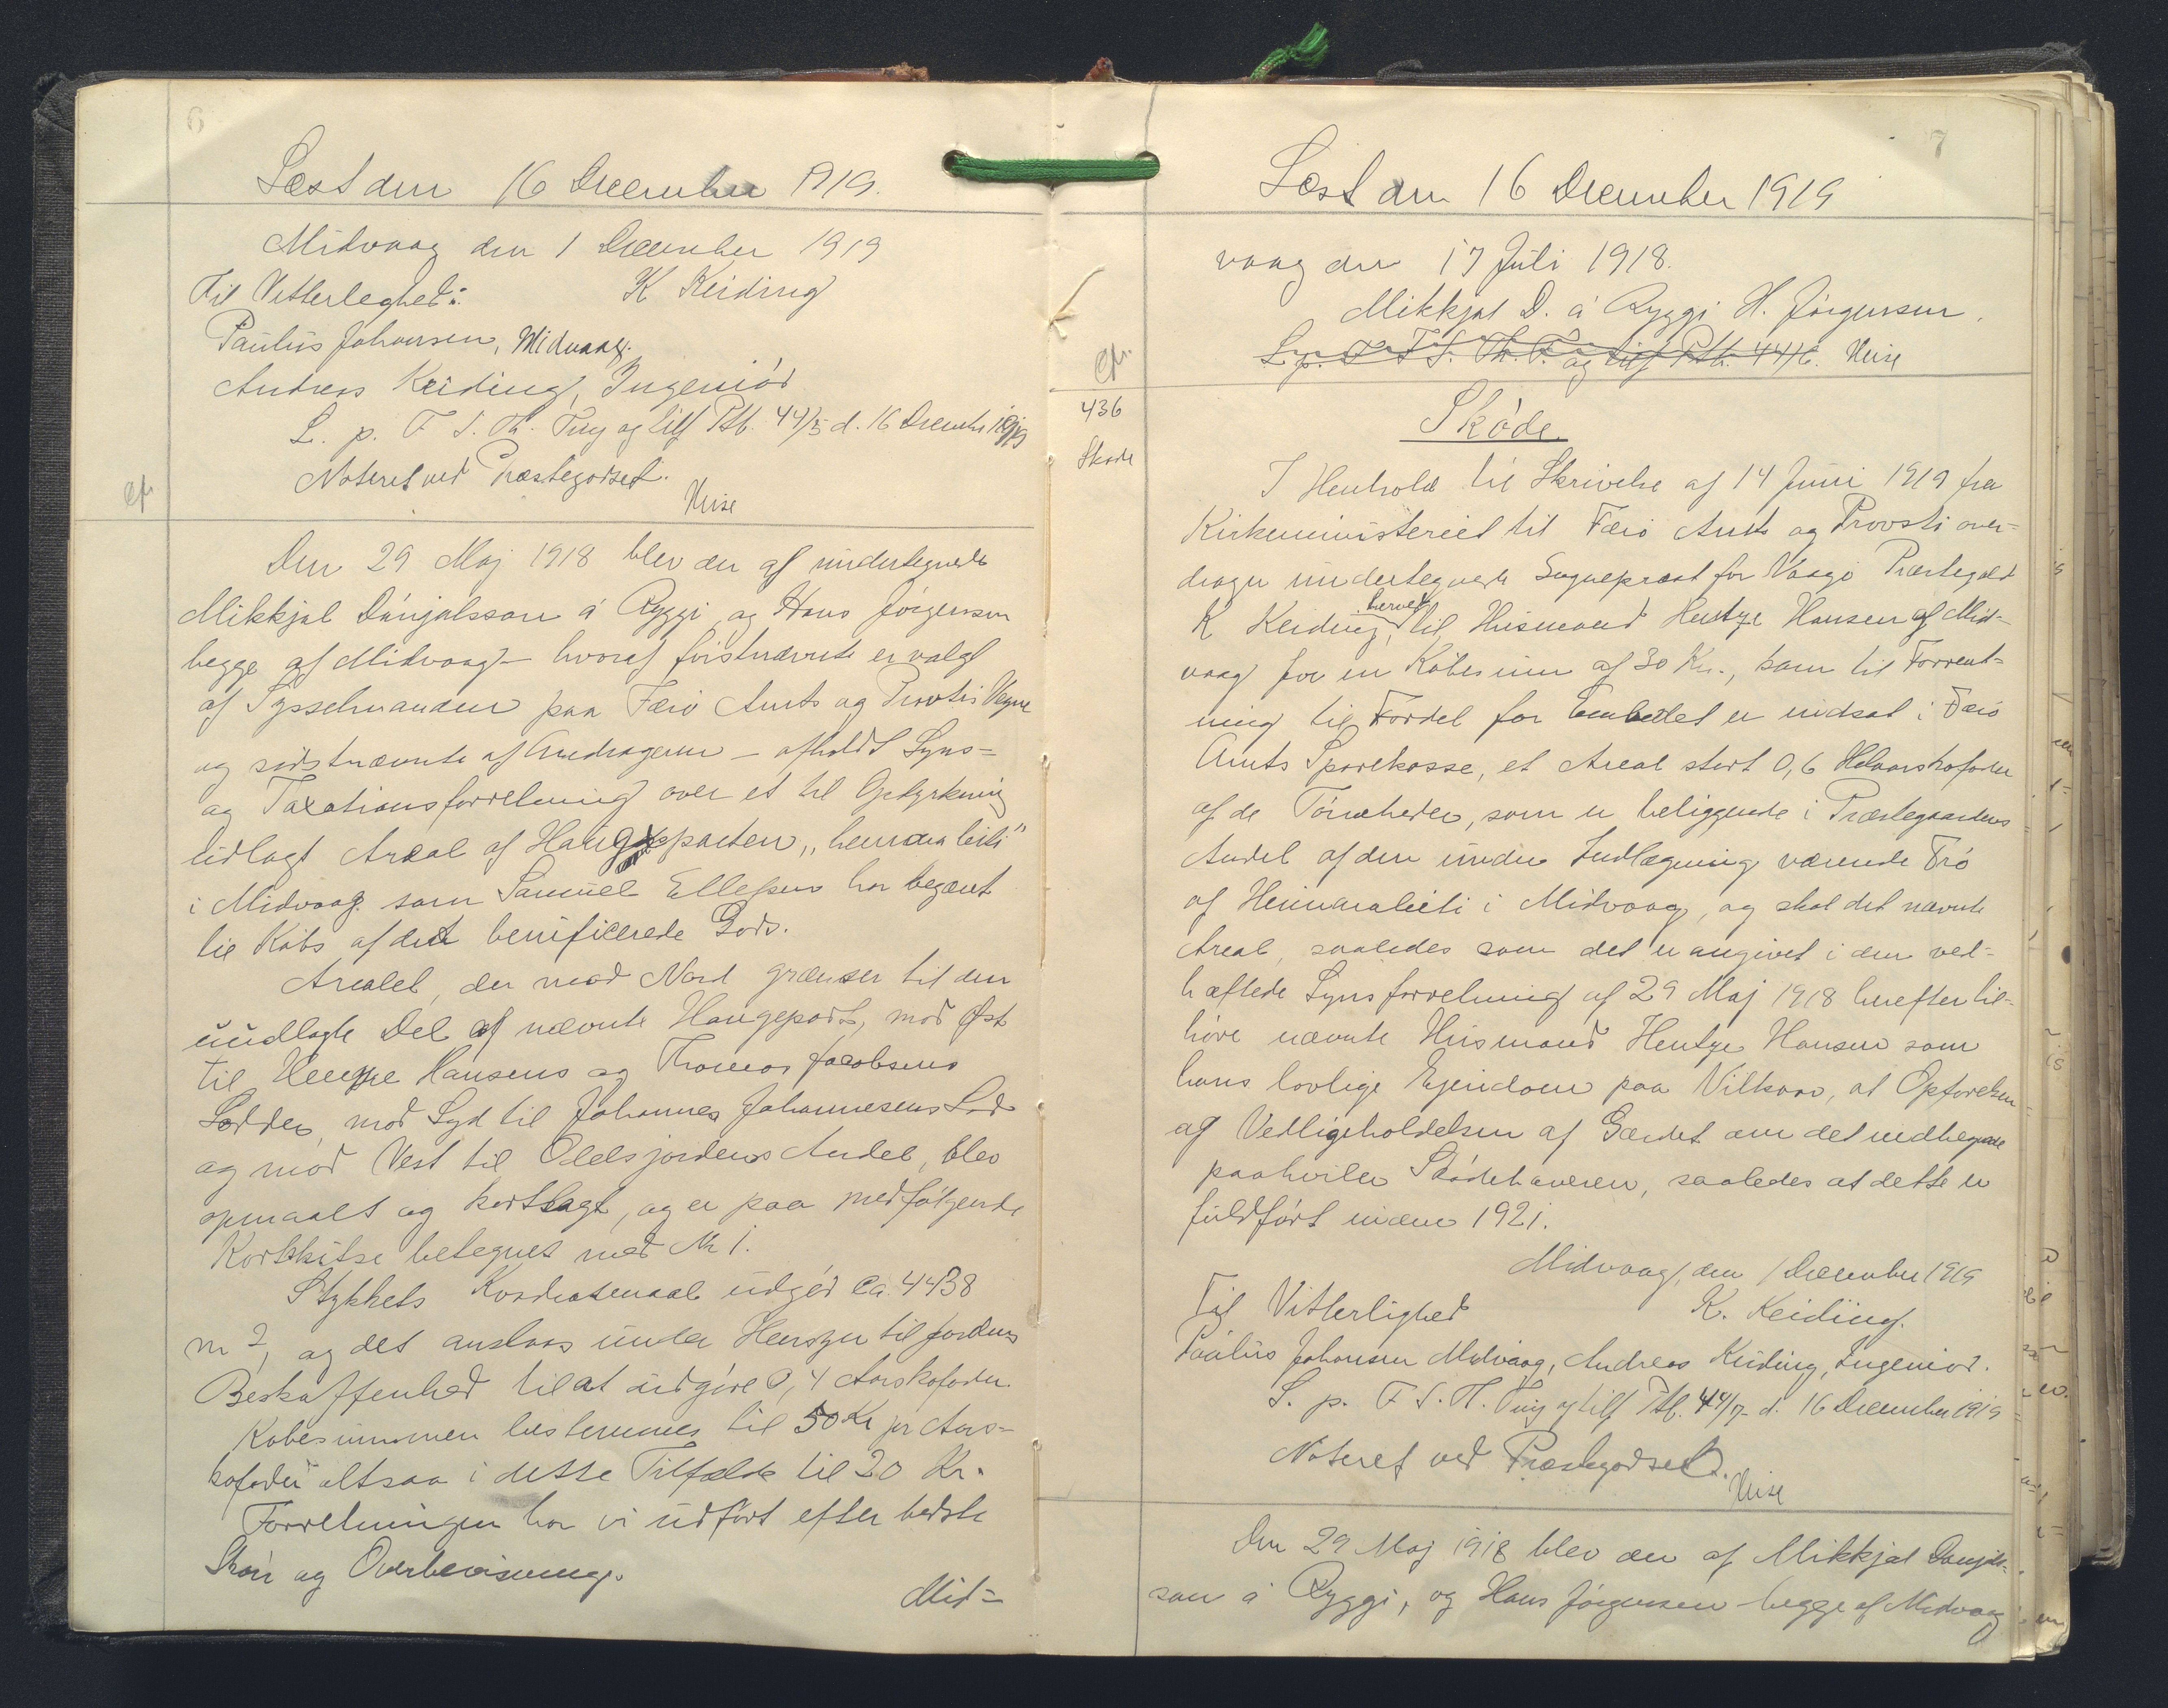 6
Læst den 16 December 1919.
Midvaag den 1 December 1919
Til Vitterleghed: K Keiding
Paulus Johansen, Midvaag.
Andreas Keiding, Ingeniör
L. p. F S. Th. Ting og lilf Ptb. 44/5 d. 16 December 1919
Noteret ved Præstegodset.
cfr.
Den 29 Maj 1918 blev der af undertegnede
Mikkjal Dánjalsson á Ryggi og Hans Jörgensen
begge af Midvaag – hvoraf förstnævnte er valgt
af Sysselmanden paa Færö Amts og Provstis Vegne
og sidstnævnte af Andrageren – afholdt Syns=
og Taxationsforretning over et til Opdyrkning
udlagt Areal af Haugeparten „heimara leiti"
i Midvaag som Samuel Ellefsen har begæret
til Köbs af det benificerede Gods.
Arealet, der mod Nord grænser til den
uudlagte Del af nævnte Haugepart, mod Øst
til Hentze Hansens og Thomas Jacobsens
Lodder, mod Syd til Johannes Johannesens Lod
og mod Vest til Odelsjordens Andel, blev
opmaalt og kortlagt, og er paa medfölgende
Kortskitse betegnet med Nr 1.
Stykkets Kvadratmaal udgör Ca. 4438
m2, og det anslaas under Hensyn til Jordens
Beskaffenhed til at udgöre 0,4 Aarskofoder.
Købesummen bestemmes til 50 Kr pr Aars=
kofoder altsaa i dette Tilfælde til 20 Kr.
Forretningen har vi udfört efter bedste
Skön og Overbevisning.
Mid=
7
Læst den 16 December 1919
vaag den 17 Juli 1918.
Mikkjal D. á Ryggi H. Jörgensen.
L. p. F. S. Th. T. og lilf Ptb. 44/6.
cfr.
436
Skøde
Sköde
I Henhold til Skrivelse af 14 Juni 1919 fra
Kirkeministeriet til Færö Amt og Provsti over=
drager undertegnede Sognepræst for Vaagö Præstegæld
K Keiding, herved til Husmand Hentze Hansen af Mid=
vaag for en Köbesum af 30 Kr., som til Forrent=
ning til Fordel for Embedet er indsat i Færö
Amts Sparekasse, et Areal stort 0,6 Helaarskofoder
af de Törveheder, som er beliggende i Præstegaardens
Andel af den under Indlægning værende Trö
af Heimaraleiti i Midvaag, og skal det nævnte
Areal, saaledes som det er angivet i den ved=
hæftede Synsforretning af 29 Maj 1918 herefter til=
höre nævnte Husmand Hentze Hansen som
hans lovlige Ejendom paa Vilkaar, at Opförelsen
og Vedligeholdelsen af Gærdet om det indhegnede
paahviler Sködehaveren, saaledes at dette er
fuldfört inden 1921.
Midvaag, den 1 December 1919
Til Vitterlighed K. Keiding.
Paulus Johansen Midvaag, Andreas Keiding, Ingeniör.
L. p. F S. T. Ting og lilf Ptb. 44/7 d. 16 December 1919
Noteret ved Præstegodset.
Den 29 Maj 1918 blev der af Mikkjal Danjals=
son á Ryggi, og Hans Jörgensen – begge af Midvaag